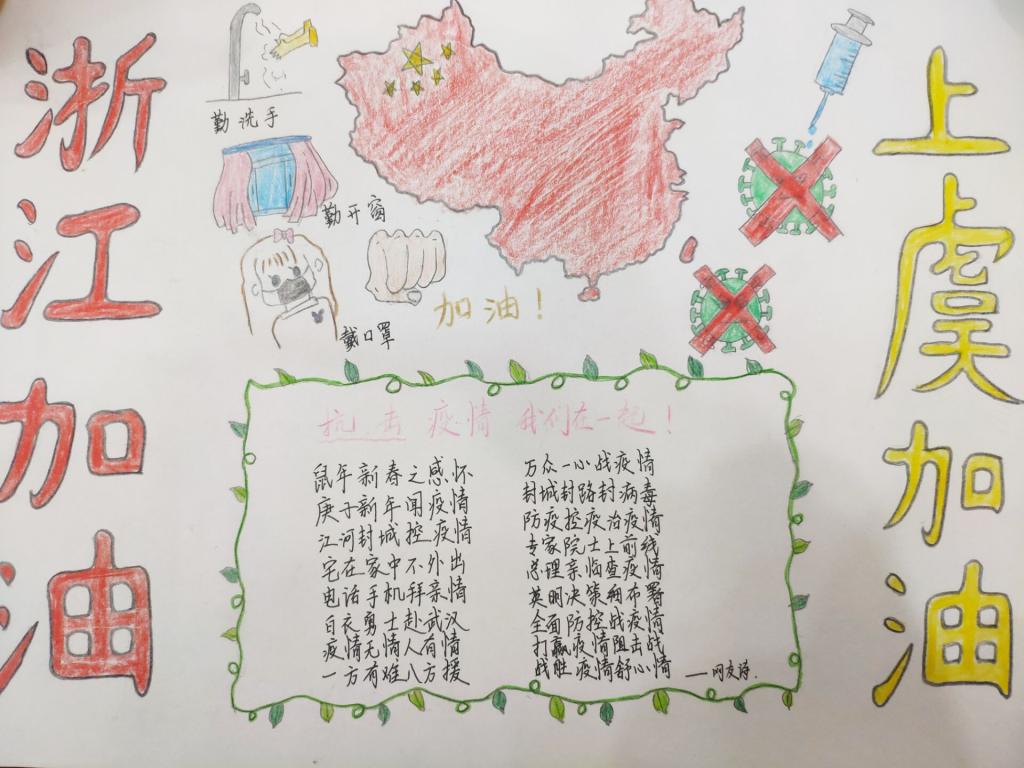 浙江加油
勤洗手
勤开窗
戴口罩
加油！
上虞加油
抗击疫情 我们在一起！
鼠年新春之感怀
庚子新年闻疫情
江河封城控疫情
宅在家中不外出
电话手机拜亲情
白衣勇士赴武汉
疫情无情人有情
一方有难八方援
万众一心战疫情
封城封路封病毒
防疫控疫治疫情
专家院士上前线
总理亲临查疫情
英明决策细布署
全面防控战疫情
打赢疫情阻击战
战胜疫情舒心情
——网友诗.